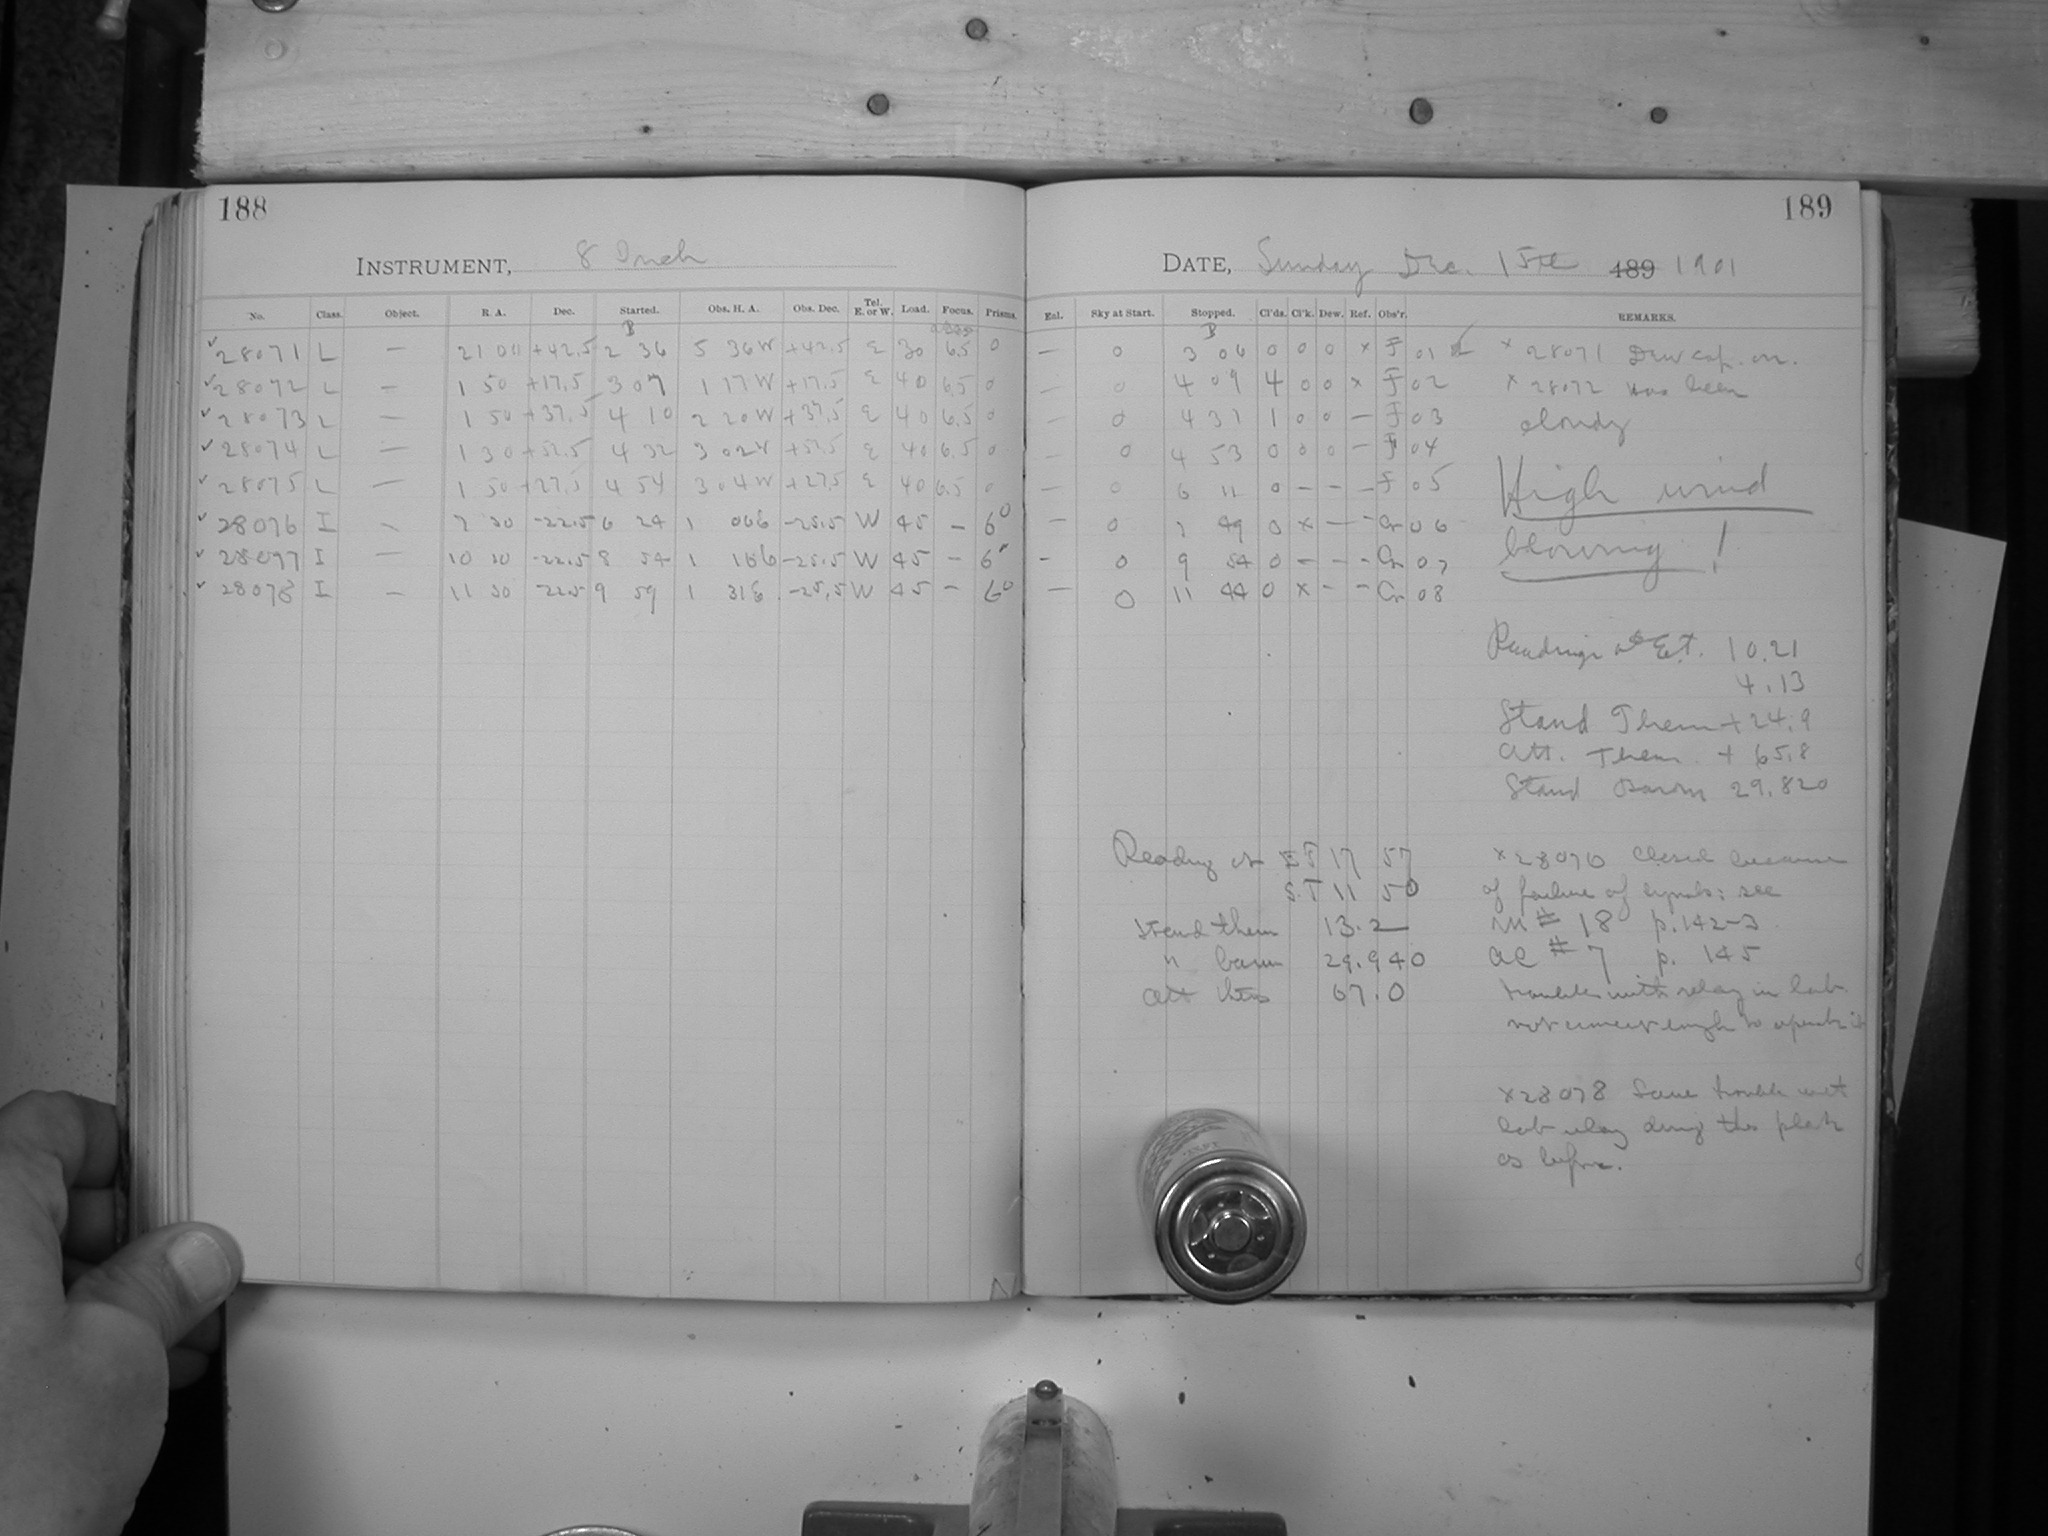 188
INSTRUMENT, 8 Inch
No. Class. Object. R. A. Dec. Started. Obs. H. A. Obs. Dec. Tel. E. or W. Load. Focus. Prisms.
B
28071 L — 21 00 +42.5 2 36 5 36W +42.5 E 30 6.5 0
28072 L — 1 50 +17.5 3 07 1 17W +17.5 E 40 6.5 0
28073 L — 1 50 +37.5 4 10 2 20W +37.5 E 40 6.5 0
28074 L — 1 30 +52.5 4 32 3 02W +52.5 E 40 6.5 0
28075 L — 1 50 +27.5 4 54 3 04W +27.5 E 40 6.5 0
28076 I — 7 30 -22.5 6 24 1 06E -25.5 W 45 — 6°
28077 I — 10 10 -22.5 8 54 1 16E -25.5 W 45 — 6°
28078 I — 11 30 -22.5 9 59 1 31E -25.5 W 45 — 6°
189
DATE, Sunday Dec. 15th 189 1901
Enl. Sky at Start. Stopped. Cl'ds. Cl'k. Dew. Ref. Obs'r. REMARKS.
B
— 0 3 06 0 0 0 x F 01 x 28071 Dew cap on.
— 0 4 09 4 0 0 x F 02 x 28072 Has been
— 0 4 31 1 0 0 — F 03 cloudy
— 0 4 53 0 0 0 — F 04
— 0 6 11 0 — — — F 05 High wind
— 0 7 49 0 x — — Cr 06
— 0 9 54 0 — — — Cr 07 blowing!
— 0 11 44 0 x — — Cr 08
Readings at E.T. 10.21
4.13
Stand Therm +24.9
Att. Therm. +65.8
Stand Barom 29.820
Reading at E T 17 57
S.T 11 50
Stand therm 13.2
" barom 29.940
Att ther 67.0
x28076 Closed because
of failure of signals: see
M # 18 p. 142-3
AC # 7 p. 145
trouble with relay in lab.
not current enough to operate it
x28078 Same trouble with
lab relay during this plate
as before.